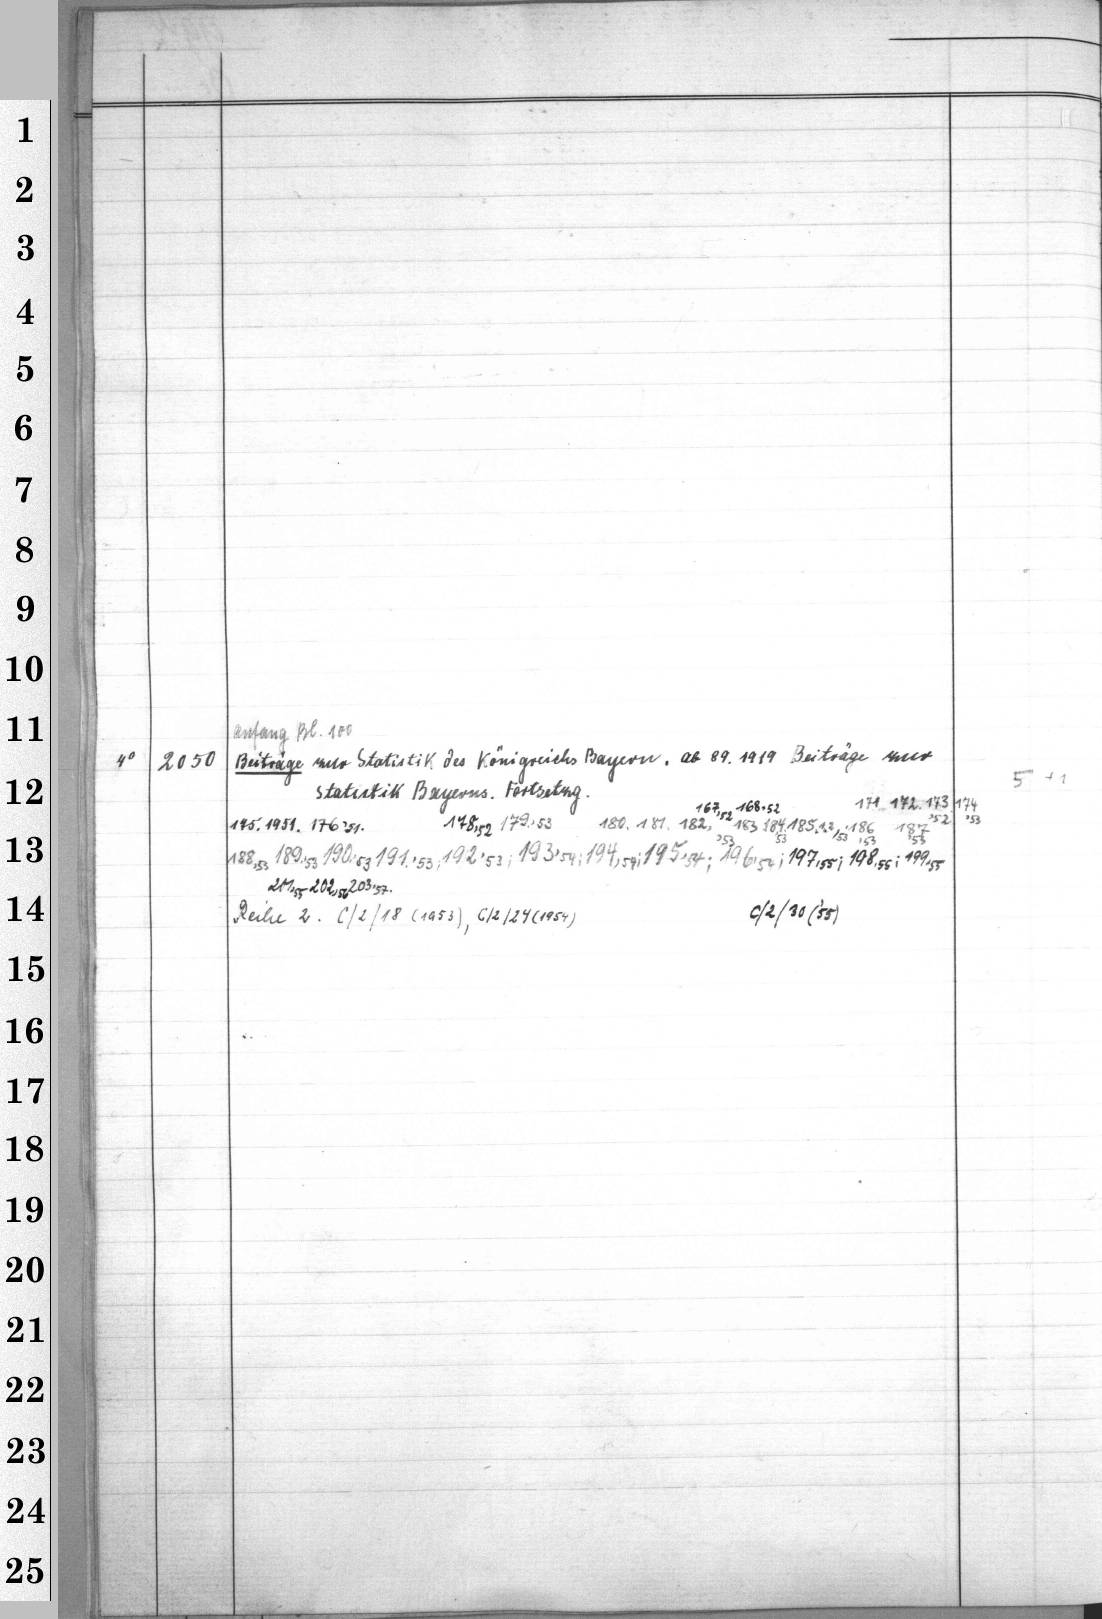 1
2
3
4
5
6
7
8
9
10
11
Anfang Bl. 100
4° 2050 Beiträge zur Statistik des Königreichs Bayern. ab 89. 1919 Beiträge zur
12
Statistik Bayerns. Fortsetzg.
5 +1
167,52 168,52 171 172. 173,52 174,53
175. 1951. 176,51. 178,52 179,53 180. 181. 182,53 183 184,53 185. 186,53 187,53
13
188,53 189,53 190,53 191,53; 192,53; 193,54; 194,54; 195,54; 196,54; 197,55; 198,56; 199,55
201,55 202,56 203,57.
14
Reihe 2. C/2/18 (1953), C/2/24 (1954) C/2/30 ('55)
15
16
17
18
19
20
21
22
23
24
25